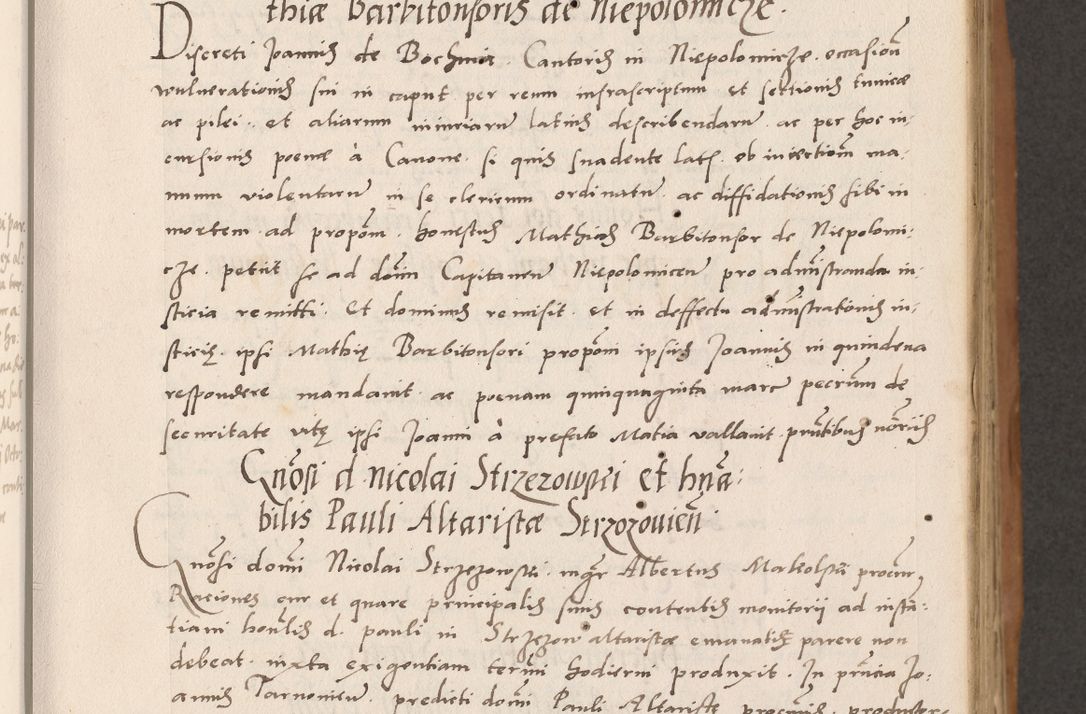 thiæ Barbitonsoris de Niepolomicze.
Discreti Joannis de Bochnia Cantoris in Niepolomicze occasion̄
vulnerationis sui in caput per reum infrascriptum et sectionis tunicæ
ac pilei. et aliarum iniuriarū latius describendarū ac per hoc in-
cursionis poenæ à Canone. si quis suadente lats. ob iniectionē ma-
num violentarū in se clericum ordinatū ac diffidationis sibi in
mortem ad propōm. honestus Mathias Barbitonsor de Niepolomi-
cze. petiit se ad dom̄ Capitaneū Niepolomiceñ pro adm̄istranda iu-
sticia remitti. Et dominus remisit. et in deffectu adm̄istrationis iu-
sticię. ipsi Mathię Barbitonsori propōni ipsius Joannis in quindena
respondere mandauit ac poenam quinquaginta marc̄ pecc̄um de
securitate vitę ipsi Joanni à prefato Matia vallauit. pn̄tibus nōriis
Gn̄osi d Nicolai Strzezowsci et hn̄a-
bilis Pauli Altaristæ Strzozouien̄.
Gn̄osi dom̄i Nicolai Strzezowsci. mgr̄ Albertus procur̄
Raciones cur et quare principalis suus contentis monitorii ad instā-
tiam hon̄lis d. pauli in Strzezow altaristæ emanatis parere non
debeat. iuxta exigentiam term̄i hodierni produxit. In pn̄cia Jo-
annis Tarnouieñ. predicti dom̄i Pauli Altariste procuris. productor-